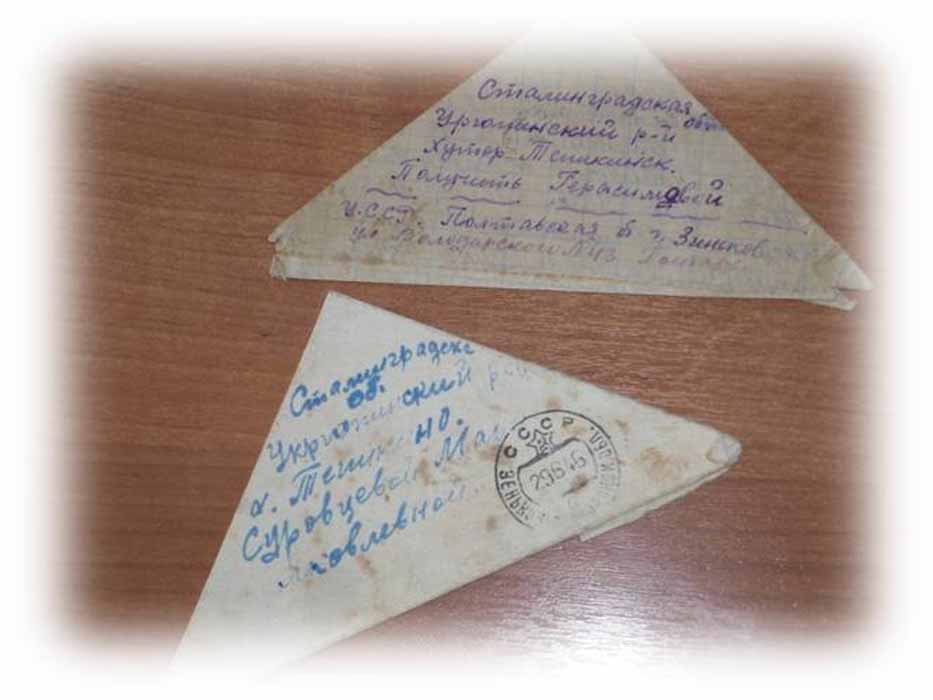 Сталинградская
обл
Ургопинский р-й
Хутор-Тепикинск.
Получить Герасимовой
У.ССР. Полтавская б г. Зиньков
ул Володарского №
Сталинградск
об.
Укргопинский рай
х. Тепикино.
Суровцевой
СССР
29645
ЗЕНЬКОВ